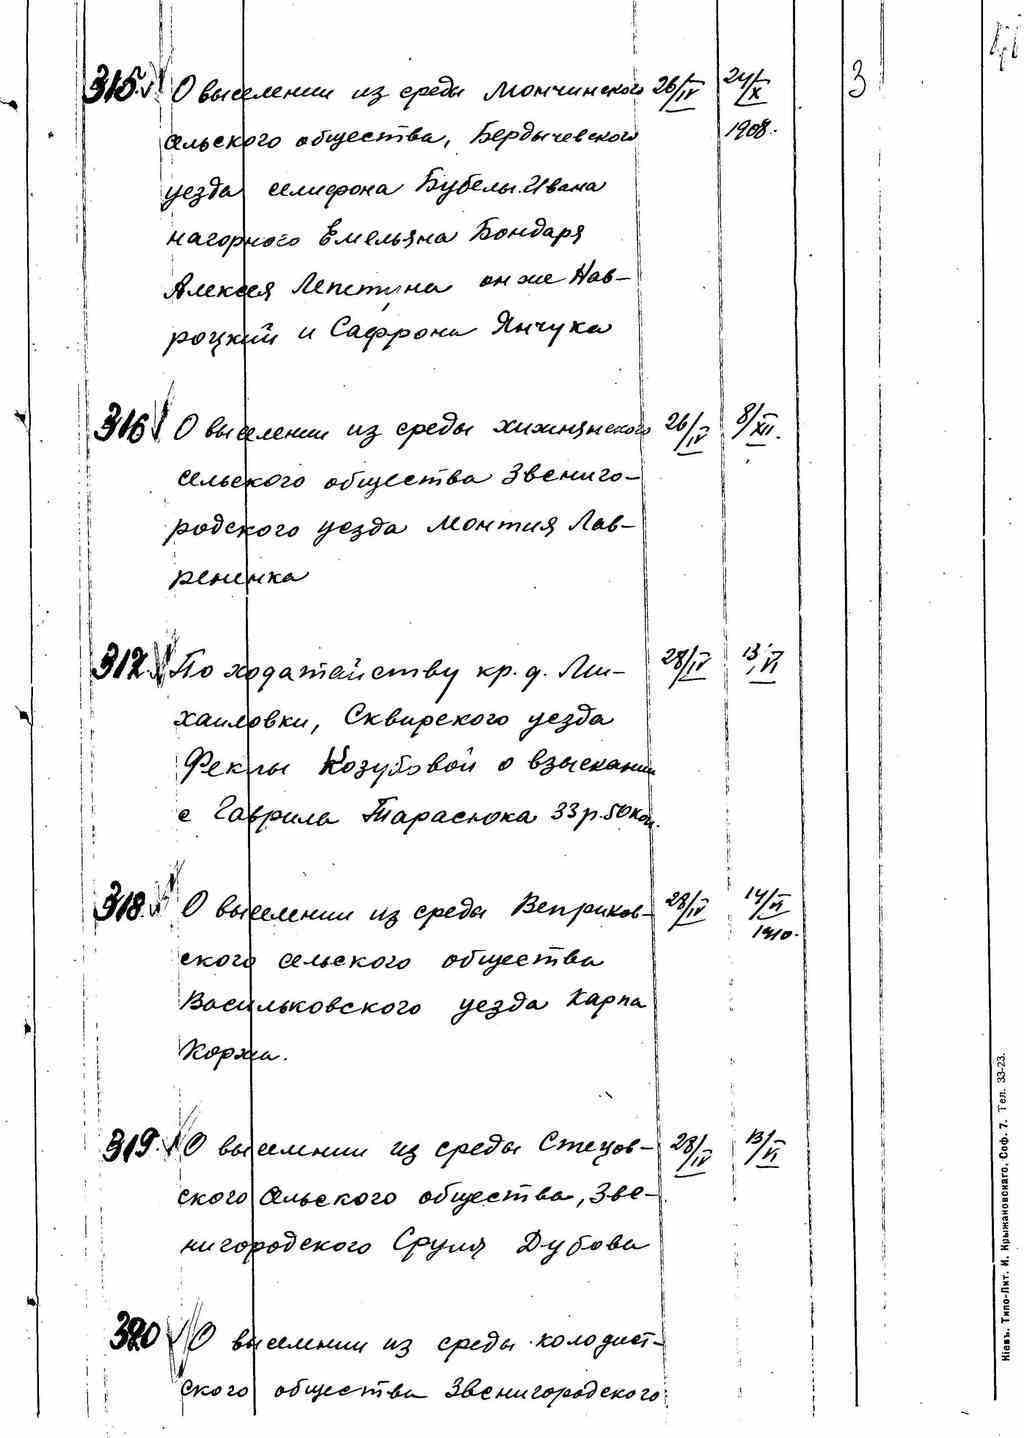 315. О выселении из среды Мончинского 26/IV 24/X 3
сельского общества, Бердычевского 1908.
уезда селифона Бубелы. Ивана
нагорного Емельяна Бондаря
Алексея Лепетина он же Нав-
роцкий и Сафрона Янчука
316 О выселении из среды хижинянского 26/IV 8/XII.
сельского общества Звениго-
родского уезда Монтия Лав-
рененка
317. По ходатайству кр. д. Ми- 28/IV 13/VI
хаиловки, Сквирского уезда
Феклы Козубовой о взыскании
с Гаврила Тарасюка 33 р. 50 коп.
318. О выселении из среды Веприков- 28/IV 14/VI
ского сельского общества 1910.
Васильковского уезда Карпа
Коржа.
319. О выселении из среды Стецов- 28/IV 13/VI
ского сельского общества, Зве-
нигородского Сруля Дубова
320 О выселении из среды колодист-
ского общества Звенигородского
Кіевъ. Типо-Лит. И. Крыжановскаго, Соф. 7. Тел. 33-23.